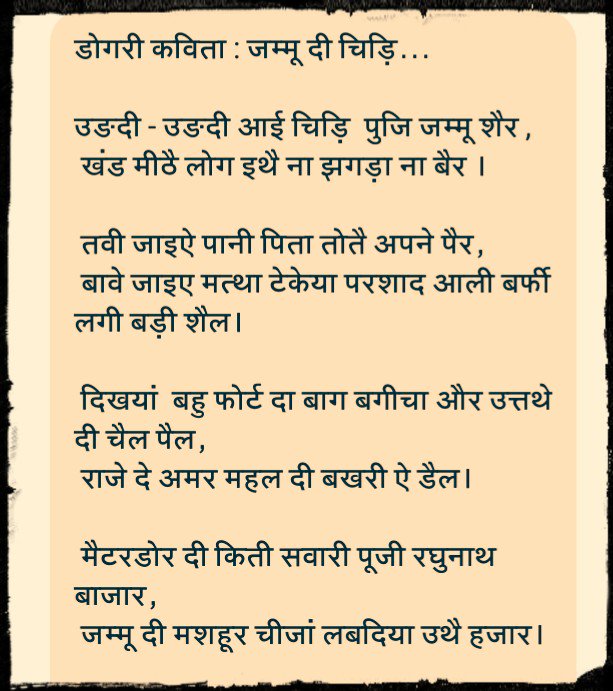 डोगरी कविता : जम्मू दी चिड़ि...
उङदी - उङदी आई चिड़ि पुजि जम्मू शैर ,
खंड मीठै लोग इथै ना झगड़ा ना बैर ।
तवी जाइऐ पानी पिता तोतै अपने पैर,
बावे जाइए मत्था टेकेया परशाद आली बर्फी
लगी बड़ी शैल।
दिखयां बहु फोर्ट दा बाग बगीचा और उत्तथे
दी चैल पैल,
राजे दे अमर महल दी बखरी ऐ डैल।
मैटरडोर दी किती सवारी पूजी रघुनाथ
बाजार,
जम्मू दी मशहूर चीजां लबदिया उथै हजार।